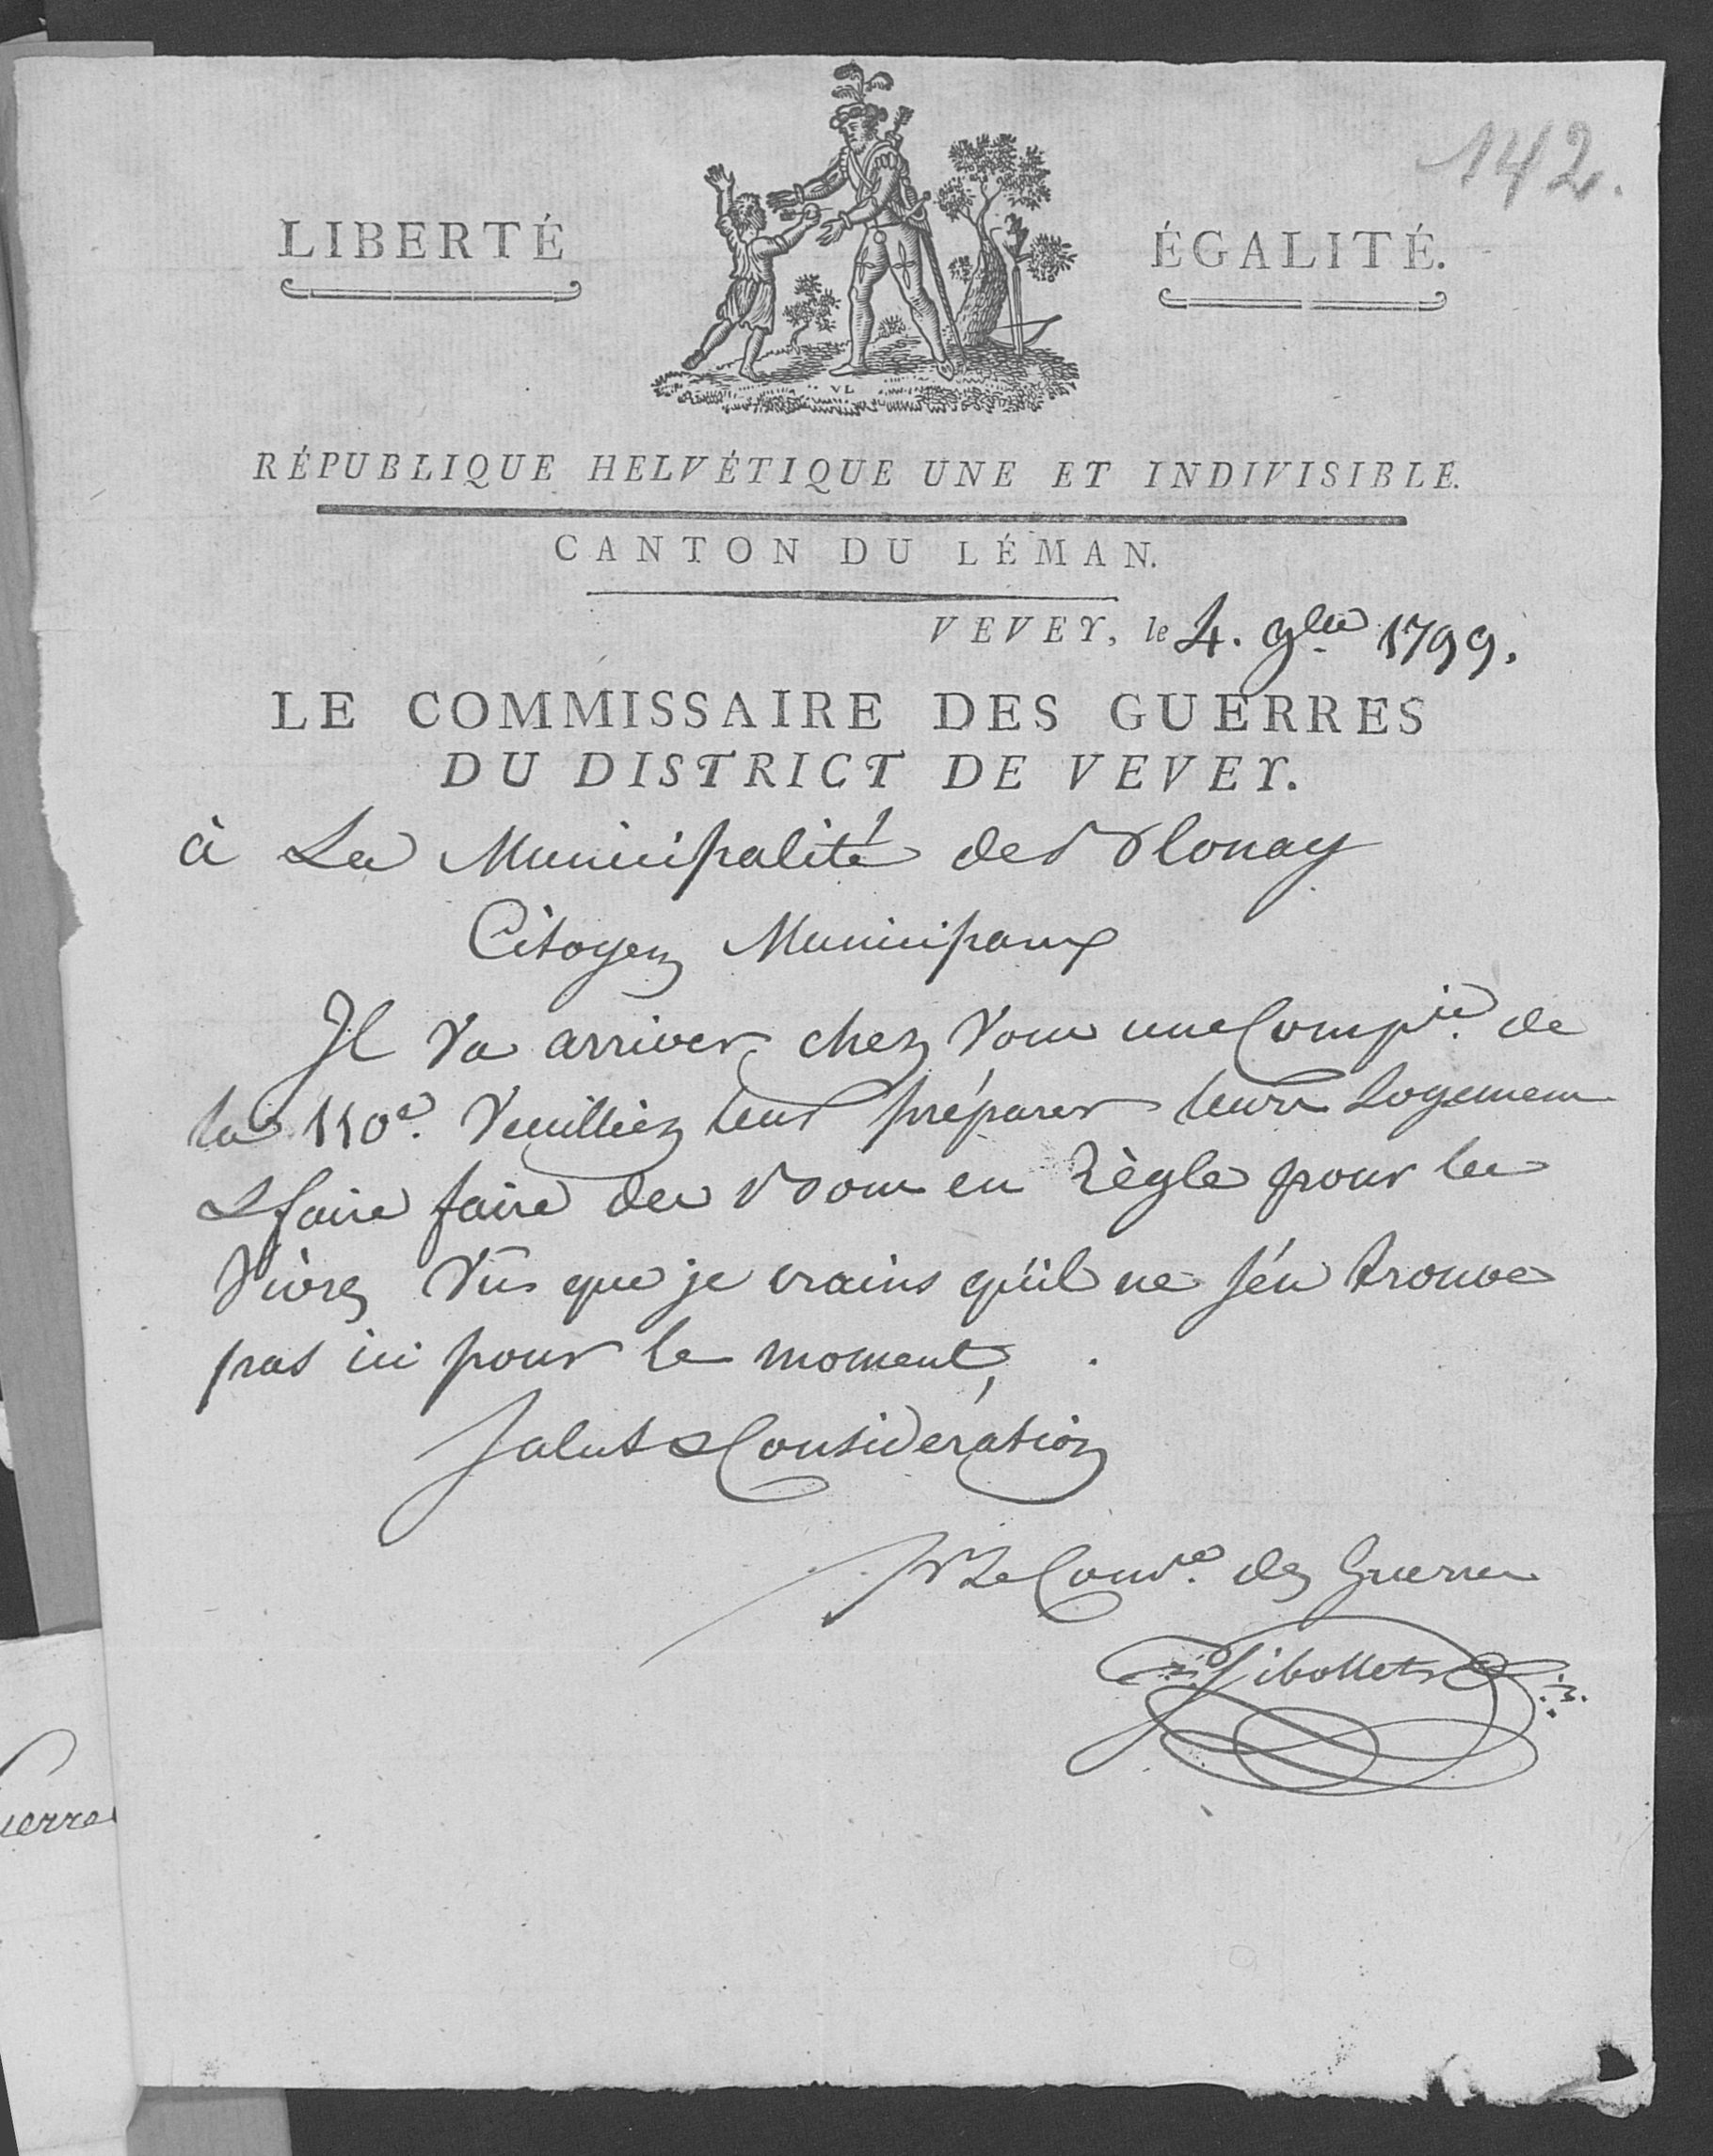 142.
LIBERTÉ
ÉGALITÉ.
VL
RÉPUBLIQUE HELVÉTIQUE UNE ET INDIVISIBLE.
CANTON DU LÉMAN.
VEVEY, le 4. 9bre 1799.
LE COMMISSAIRE DES GUERRES
DU DISTRICT DE VEVEY.
à La Municipalité de Blonay
Citoyens Municipaux
Il va arriver chez vous une Compie. de
la 110e. Veuilliez leur préparer leurs Logemens
& faire faire des Bons en Règle pour les
vivres vû que je crains qu'il ne s'en trouve
pas ici pour le moment,
Salut & Considération
pr Le Comre. des Guerres
Gibollet
uerres